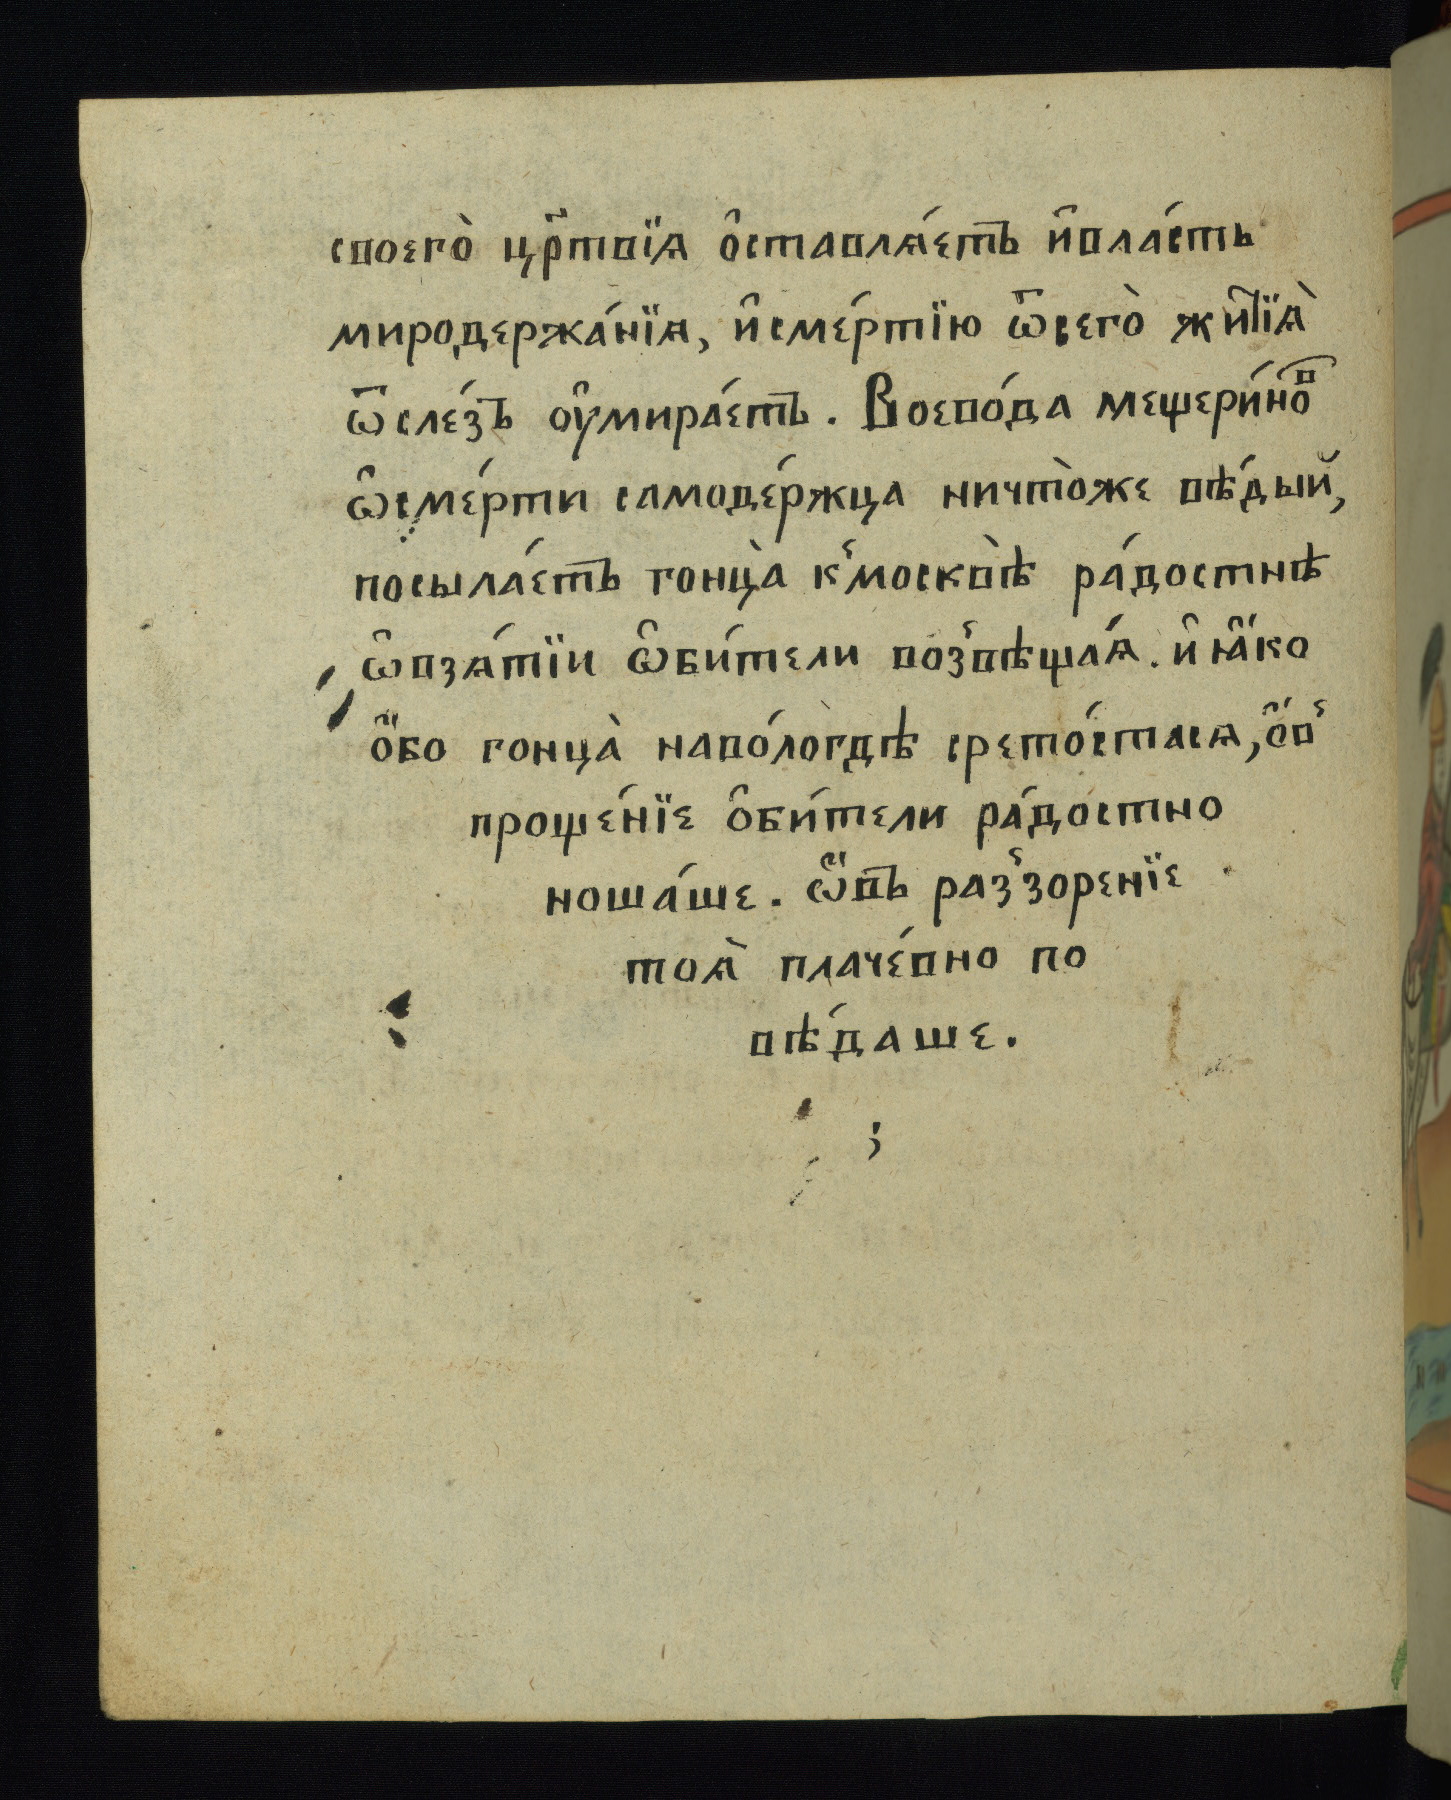 своего̀ цр҃твїѧ ѻ҆ставлѧ́етъ и҆вла́сть
миродержа́нїѧ, и҆сме́ртїю ѿсего̀ житїѧ̀
ѿсле́зъ оу҆мира́етъ. Воево́да мещери́новъ
ѡ҆сме́рти самоде́ржца ничто̀же вѣ́дый,
посыла́етъ гонца̀ к̾москвѣ̀ ра́достнѣ
ѡ҆взѧ́тїи ѡ҆би́тели воз̾вѣща́ѧ. и҆ ꙗ҆́ко
о҆́бо гонца̀ наво́логдѣ срето́стасѧ, о҆́в̾
проще́нїе ѻ҆би́тели ра́достно
ноша́ше. ѡ҆́въ раз̾зоренїе
тоѧ̀ плаче́вно по
вѣ́даше.